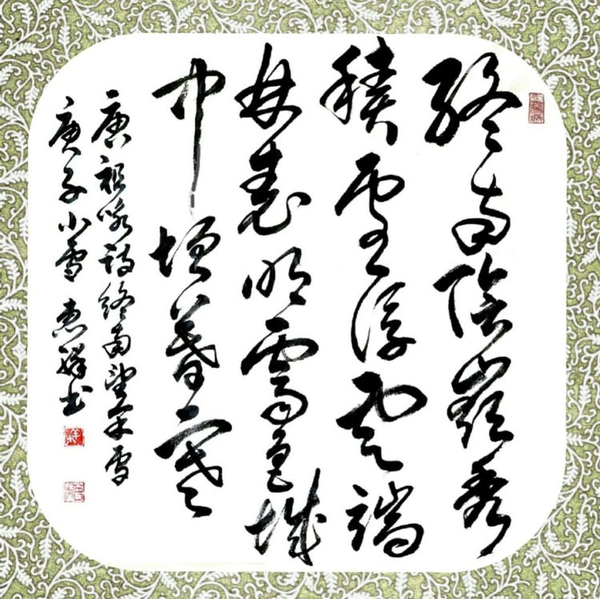 終南陰嶺秀
積雪浮雲端
林表明霽色城
中增暮寒
唐祖咏詩終南望余雪
庚子小雪 惠 书